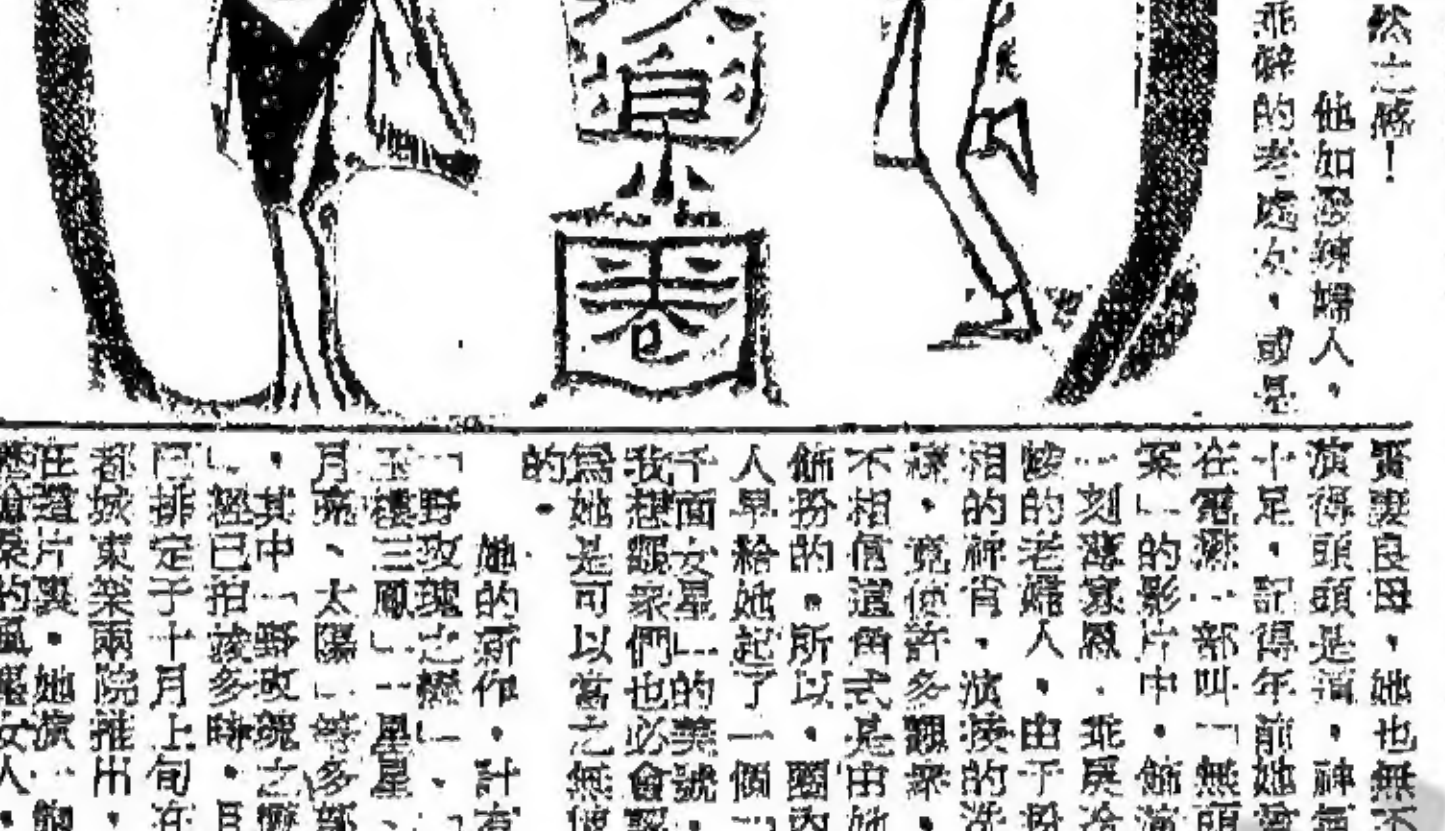 然之慨！
他如潑辣婦人，
乖僻的老處女，或是
賢妻良母，她也無不
演得頭頭是道，神氣
十足，記得年前她
在電懋一部叫「無頭
案」的影片中，飾演
一刻薄寡恩，乖戾冷
的老婦人，由于扮
相的神肖，演技的
練，竟使許多觀衆，
不相信這角式是由她
飾扮的。所以，圈內
人早給她起了一個「
千面女星」的美號，
我想觀衆們也必會認
爲她是可以當之無愧
的。
她的新作，計有
「野玫瑰之戀」、「
玉樓三鳳」「星星、
月亮、太陽」等多部
，其中「野玫瑰之戀
」經已拍竣多時，且
已排定于十月上旬在
都城東樂兩院推出，
在這片裏，她演一個
的風塵女人，